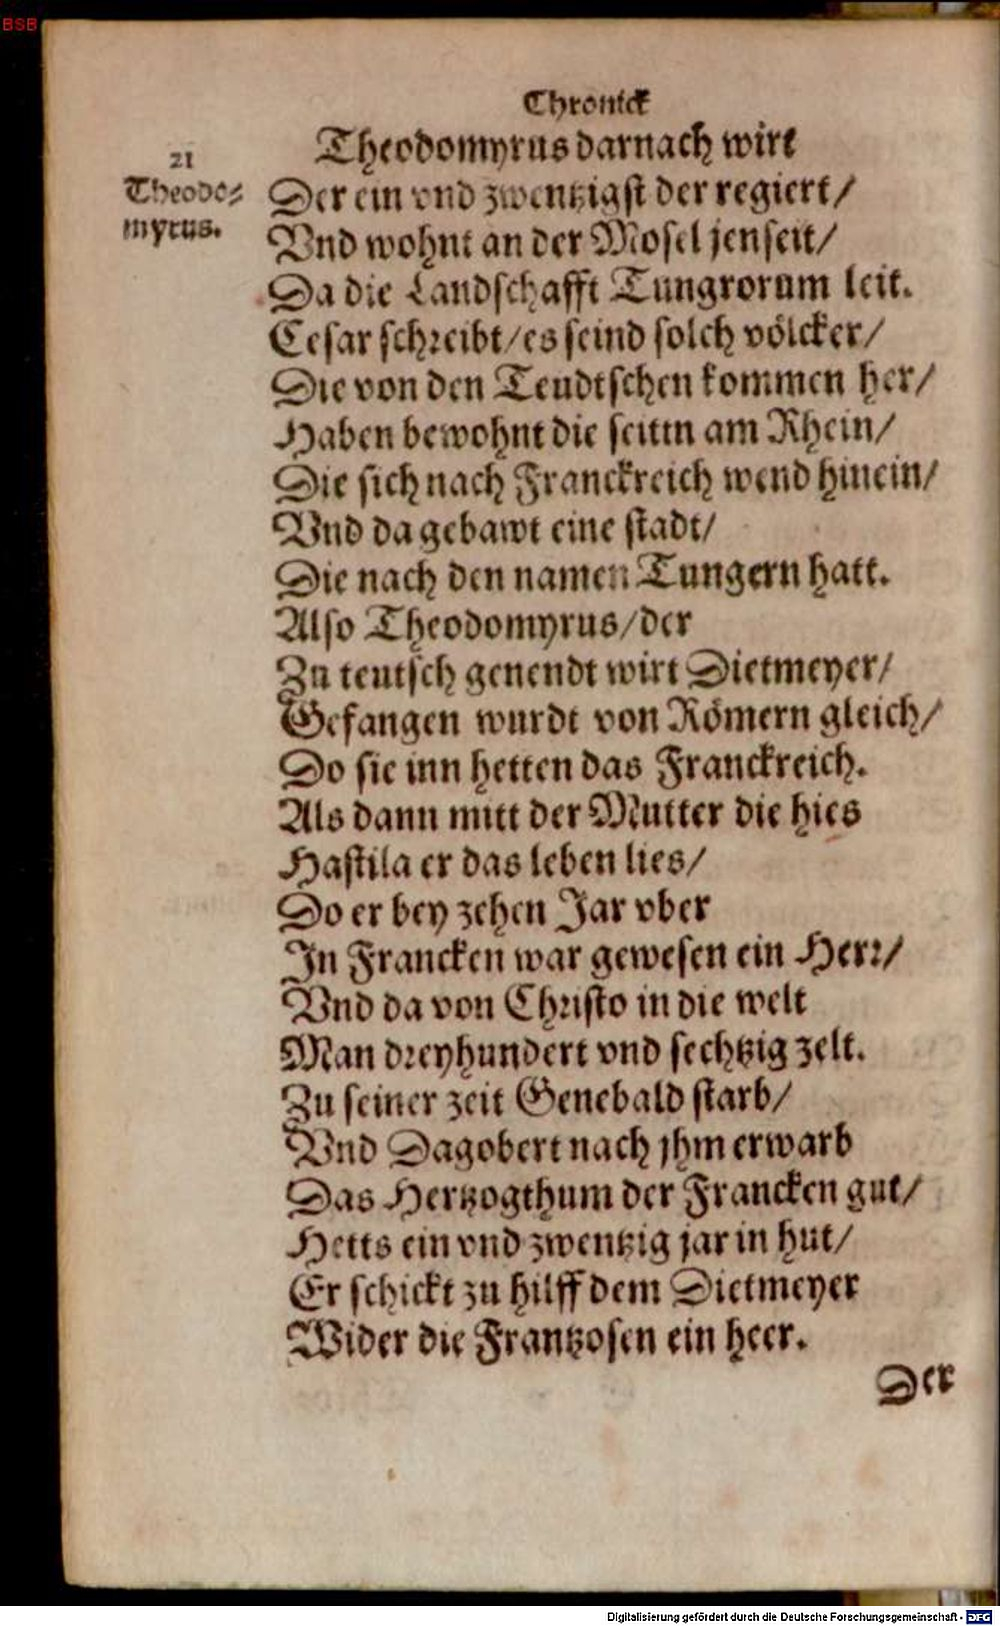 BSB
Chronick
21
Theodo⸗
myrus.
Theodomyrus darnach wirt
Der ein vnd zwentzigst der regiert/
Vnd wohnt an der Mosel jenseit/
Da die Landschafft Tungrorum leit.
Cesar schreibt/es seind solch völcker/
Die von den Teudtschen kommen her/
Haben bewohnt die seittn am Rhein/
Die sich nach Franckreich wend hinein/
Vnd da gebawt eine stadt/
Die nach den namen Tungern hatt.
Also Theodomyrus/der
Zu teutsch genendt wirt Dietmeyer/
Gefangen wurdt von Römern gleich/
Do sie inn hetten das Franckreich.
Als dann mitt der Mutter die hies
Hastila er das leben lies/
Do er bey zehen Jar vber
In Francken war gewesen ein Herr/
Vnd da von Christo in die welt
Man dreyhundert vnd sechtzig zelt.
Zu seiner zeit Genebald starb/
Vnd Dagobert nach jhm erwarb
Das Hertzogthum der Francken gut/
Hetts ein vnd zwentzig jar in hut/
Er schickt zu hilff dem Dietmeyer
Wider die Frantzosen ein heer.
Der
Digitalisierung gefördert durch die Deutsche Forschungsgemeinschaft - DFG